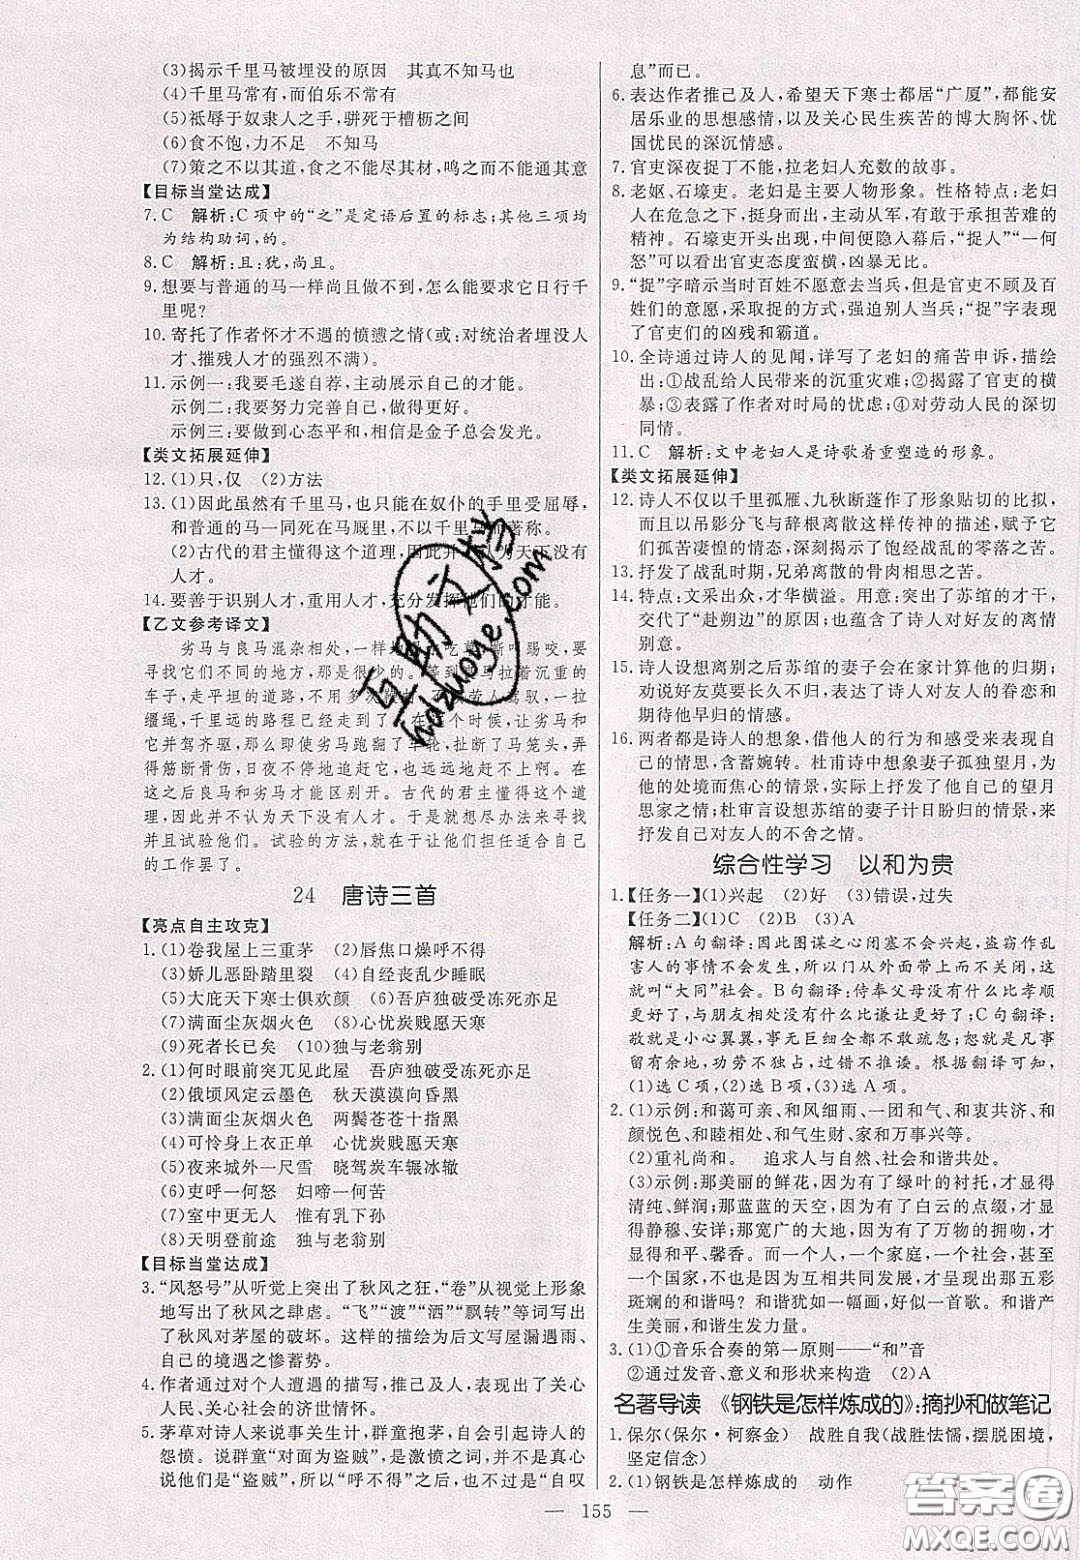 (3)揭示千里马被埋没的原因　其真不知马也
(4)千里马常有,而伯乐不常有
(5)祗辱于奴隶人之手,骈死于槽枥之间
(6)食不饱,力不足　不知马
(7)策之不以其道,食之不能尽其材,鸣之而不能通其意
【目标当堂达成】
7. C　解析:C项中的“之”是定语后置的标志;其他三项均
为结构助词,的。
8. C　解析:且:犹,尚且。
9. 想要与普通的马一样尚且做不到,怎么能要求它日行千
里呢?
10. 寄托了作者怀才不遇的愤懑之情(或:对统治者埋没人
才、摧残人才的强烈不满)。
11. 示例一:我要毛遂自荐,主动展示自己的才能。
示例二:我要努力完善自己,做得更好。
示例三:要做到心态平和,相信是金子总会发光。
【类文拓展延伸】
12. (1)只,仅　(2)方法
13. (1)因此虽然有千里马,也只能在奴仆的手里受屈辱,
和普通的马一同死在马厩里,不以千里马而著称。
(2)古代的君主懂得这个道理,因此并不认为天下没有
人才。
14. 要善于识别人才,重用人才,充分发挥他们的才能。
【乙文参考译文】
劣马与良马混杂相处,一样吃草嘶叫踢咬,要
寻找它们不同的地方,那是很少的。等到拉着沉重的
车子,走平坦的道路,不用多次鞭策,不烦人驾驭,一拉
缰绳,千里远的路程已经到了。在这个时候,让劣马和
它并驾齐驱,那么即使劣马跑翻了车轮,挣断了马笼头,弄
得筋断骨伤,日夜不停地追赶它,也远远地赶不上啊。在
这之后良马和劣马才能区别开。古代的君主懂得这个道
理,因此并不认为天下没有人才。于是想尽办法来寻求人
才并且试验他们。试验的方法,就是让他们担任适合自己
的工作罢了。
24　唐诗三首
【亮点自主攻克】
1. (1)卷我屋上三重茅　(2)唇焦口燥呼不得
(3)娇儿恶卧踏里裂　(4)自经丧乱少睡眠
(5)大庇天下寒士俱欢颜　(6)吾庐独破受冻死亦足
(7)满面尘灰烟火色　(8)心忧炭贱愿天寒
(9)死者长已矣　(10)独与老翁别
2. (1)何时眼前突兀见此屋　吾庐独破受冻死亦足
(2)俄顷风定云墨色　秋天漠漠向昏黑
(3)满面尘灰烟火色　两鬓苍苍十指黑
(4)可怜身上衣正单　心忧炭贱愿天寒
(5)夜来城外一尺雪　晓驾炭车辗冰辙
(6)吏呼一何怒　妇啼一何苦
(7)室中更无人　惟有乳下孙
(8)天明登前途　独与老翁别
【目标当堂达成】
3. “风怒号”从听觉上突出了秋风之狂,“卷”从视觉上形象
地写出了秋风之肆虐。“飞”“渡”“洒”“飘转”等词写出
了秋风对茅屋的破坏。这样的描绘为后文写屋漏遇雨、
自己的境遇之惨蓄势。
4. 作者通过对个人遭遇的描写,推己及人,表达了关心
人民、关心社会的济世情怀。
5. 茅草对诗人来说事关生计,群童抱茅,自然引起诗人的
怨愤。说群童“对面为盗贼”,是激愤之词,诗人不是真
说他们是“盗贼”,所以“呼不得”之后,也不过是“自叹
息”而已。
6. 表达作者推己及人,希望天下寒士都居“广厦”,都能安
居乐业的思想感情,以及关心民生疾苦的博大胸怀、忧
国忧民的深沉情感。
7. 官吏深夜捉丁不能,拉老妇人充数的故事。
8. 老妪、石壕吏。老妇是主要人物形象。性格特点:老妇
人在危急之中,挺身而出,主动从军,有敢于承担苦难的
精神。石壕吏开头出现,中间便隐入幕后,“捉人”“一何
怒”可以看出官吏态度蛮横,凶暴无比。
9. “捉”字暗示当时百姓不愿意去当兵,但官吏们不管老百
姓们的意愿,采取捉拉的方式,强迫别人当兵;“捉”字表现
了官吏们的凶残和霸道。
10. 全诗通过诗人的见闻,详写了老妇的痛苦申诉,描绘
出:①战乱给人民带来的沉重灾难;②揭露了官吏的横
暴;③表露了作者对时局的忧虑;④对劳动人民的深切
同情。
11. C　解析:文中老妇人是诗歌着重塑造的形象。
【类文拓展延伸】
12. 诗人不仅以千里孤雁、九秋断蓬作了形象贴切的比拟,
而且以吊影分飞与辞根离散这样传神的描述,赋予它
们孤苦凄惶的情态,深刻揭示了饱经战乱的零落之苦。
13. 抒发了战乱时期,兄弟离散的骨肉相思之苦。
14. 特点:文采出众,才华横溢。用意:突出了苏绾的才干,
交代了“赴朔边”的原因;也体现了诗人对好友的离情
别意。
15. 诗人设想离别之后苏绾的妻子会在家计算他的归期;
劝说好友莫要长久不归,表达了诗人对友人的眷恋和
期待他早归的情感。
16. 两者都是诗人的想象,借他人的行为和感受来表现自
己的情思,含蓄婉转。杜甫诗中想象妻子孤独望月,为
他的处境而焦心的情景,实际上抒发了自己的望月
思家之情;杜审言设想苏绾的妻子计日盼归的情景,来
抒发自己对友人的不舍之情。
综合性学习　以和为贵
1. 【任务一】(1)兴起　(2)好　(3)错误,过失
【任务二】(1)C　(2)B　(3)A
解析:A句翻译:因此图谋之心闭塞不会兴起,盗窃作乱
害人的事情不会发生,所以门从外面带上而不关闭,这
就叫“大同”社会。B句翻译:侍奉父母没有什么比孝顺
更好了,与朋友相处没有什么比谦让更好了;C句翻译:
故就是小心翼翼,事无巨细全都不敢疏忽;恕就是凡事
留有余地,功劳不独占,过错不推诿。因此可知,
(1)选C项,(2)选B项,(3)选A项。
2. (1)示例:和蔼可亲、和风细雨、一团和气、和衷共济、和
颜悦色、和睦相处、和气生财、家和万事兴等。
(2)重礼尚和。　追求人与自然、社会和谐共处。
(3)示例:那美丽的鲜花,因为有了绿叶的衬托,才显得
清纯、鲜润;那蓝蓝的天空,因为有了白云的点缀,才显
得静穆、安详;那宽广的大地,因为有了万物的拥吻,才
显得和平、馨香。而一个人,一个家庭,一个社会,甚至
一个国家,因为互相共同发展,才显得如此的那五彩
斑斓的和谐吗? 和谐犹如一幅画,和谐好似一首歌。和谐产
生美丽,和谐发出力量。
3. (1)①音乐合奏的第一原则——“和”音
②通过发音、意义和形状来构造　(2)A
名著导读　《钢铁是怎样炼成的》:摘抄和做笔记
1. 保尔(保尔·柯察金)　战胜自我(战胜怯懦,摆脱困境,
坚定信念)
2. (1)钢铁是怎样炼成的　动作
— 155 —
互助文档
hdzuoye.com
答案圈
MXQE.COM